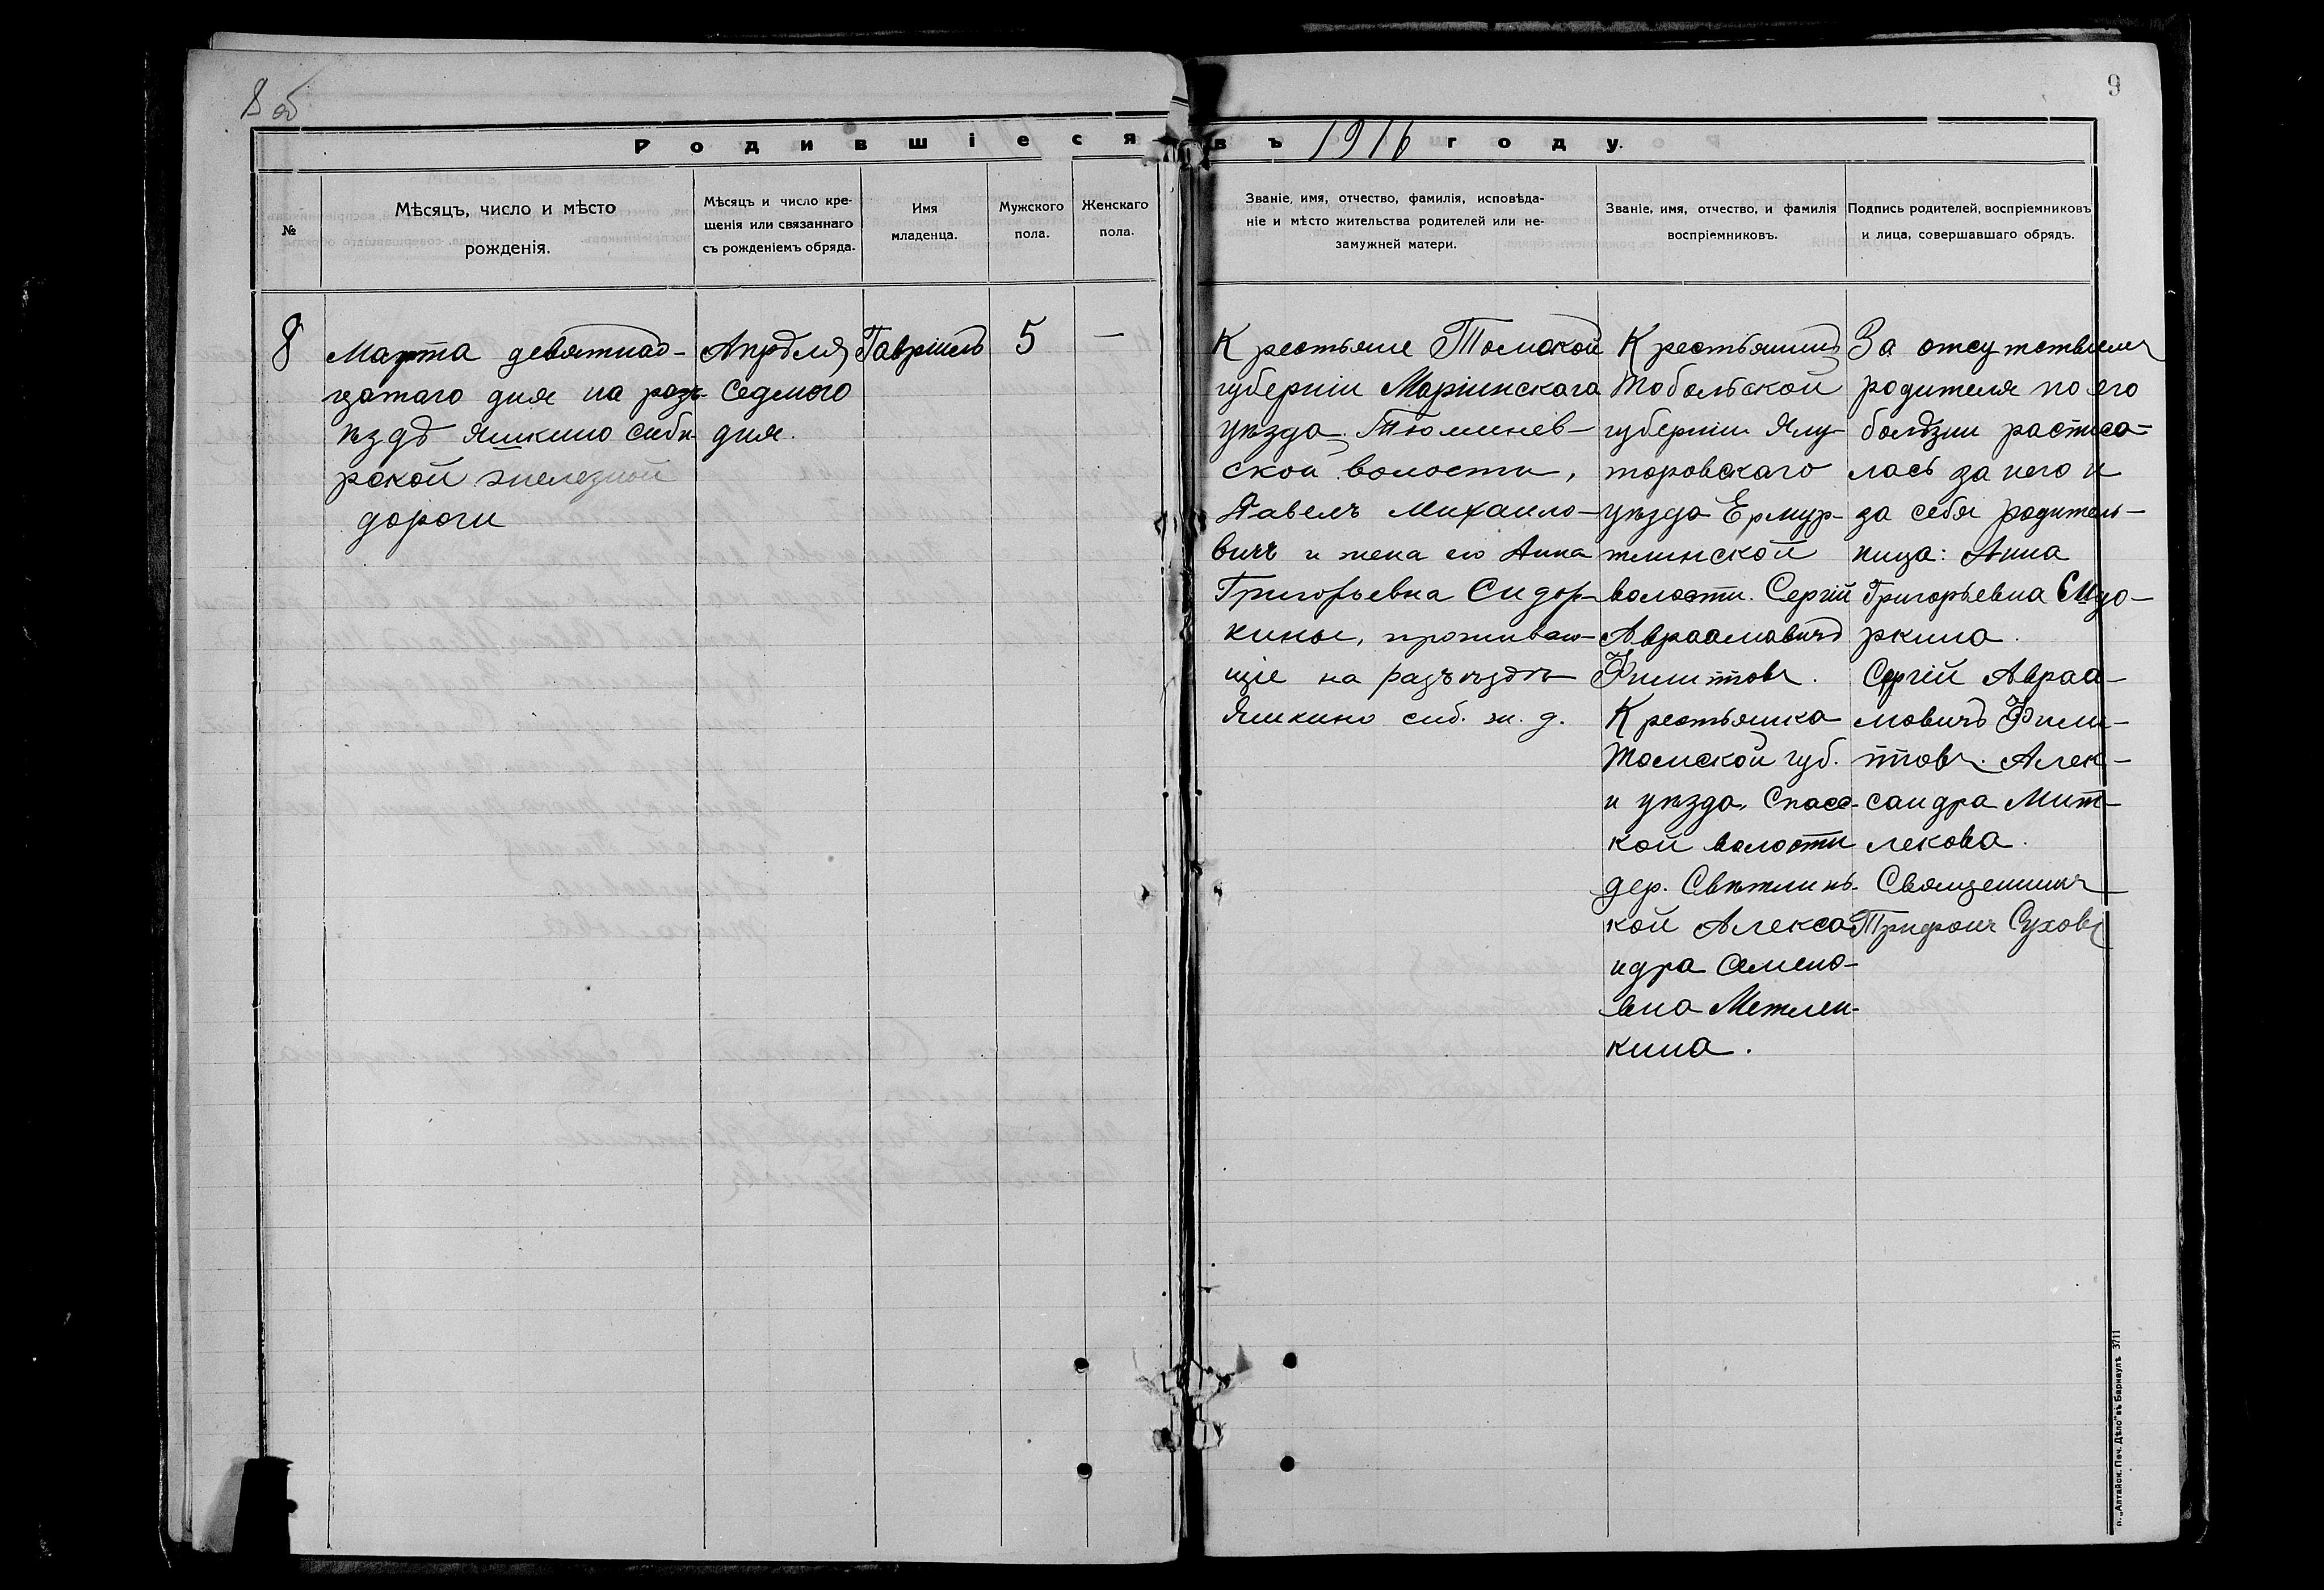 8 об
9
Родившіеся въ 1916 году.
№
Мѣсяцъ, число и мѣсто
рожденія.
Мѣсяцъ и число кре-
щенія или связаннаго
съ рожденіемъ обряда.
Имя
младенца.
Мужского
пола.
Женскаго
пола.
Званіе, имя, отчество, фамилія, исповѣда-
ніе и мѣсто жительства родителей или не-
замужней матери.
Званіе, имя, отчество, и фамилія
воспріемниковъ.
Подпись родителей, воспріемниковъ
и лица, совершавшаго обрядъ.
8
Марта девятнад-
цатаго дня на разъ-
ѣздѣ Яшкино Сиби-
рской железной
дороги
Апрѣля
седмого
дня.
Гавріилъ
5
—
Крестьяне Томской
губерніи Маріинскага
уѣзда Тюменев-
ской волости,
Павелъ Михаило-
вичъ и жена его Анна
Григорьевна Сидор-
кины, проживаю-
щіе на разъѣздѣ
Яшкино сиб. ж. д.
Крестьянинъ
Тобольской
губерніи Ялу-
торовскаго
уѣзда Ермур-
тлинской
волости. Сергій
Авраамовичъ
Филиповъ.
Крестьянка
Томской губ.
и уѣзда, Спасс-
кой волости
дер. Свѣтлинь-
кой Алекса
ндра Семено-
вна Метлен-
кина.
За отсутствіемъ
родителя по его
болѣзни расписа-
лась за него и
за себя родитель-
ница: Анна
Григорьевна Сидо-
ркина.
Сергій Авраа-
мовичъ Фили-
повъ. Алек-
сандра Мит-
лекова.
Священникъ
Трифонъ Суховъ
п. „Алтайск. Печ. Дѣло" въ Барнаулѣ 3711